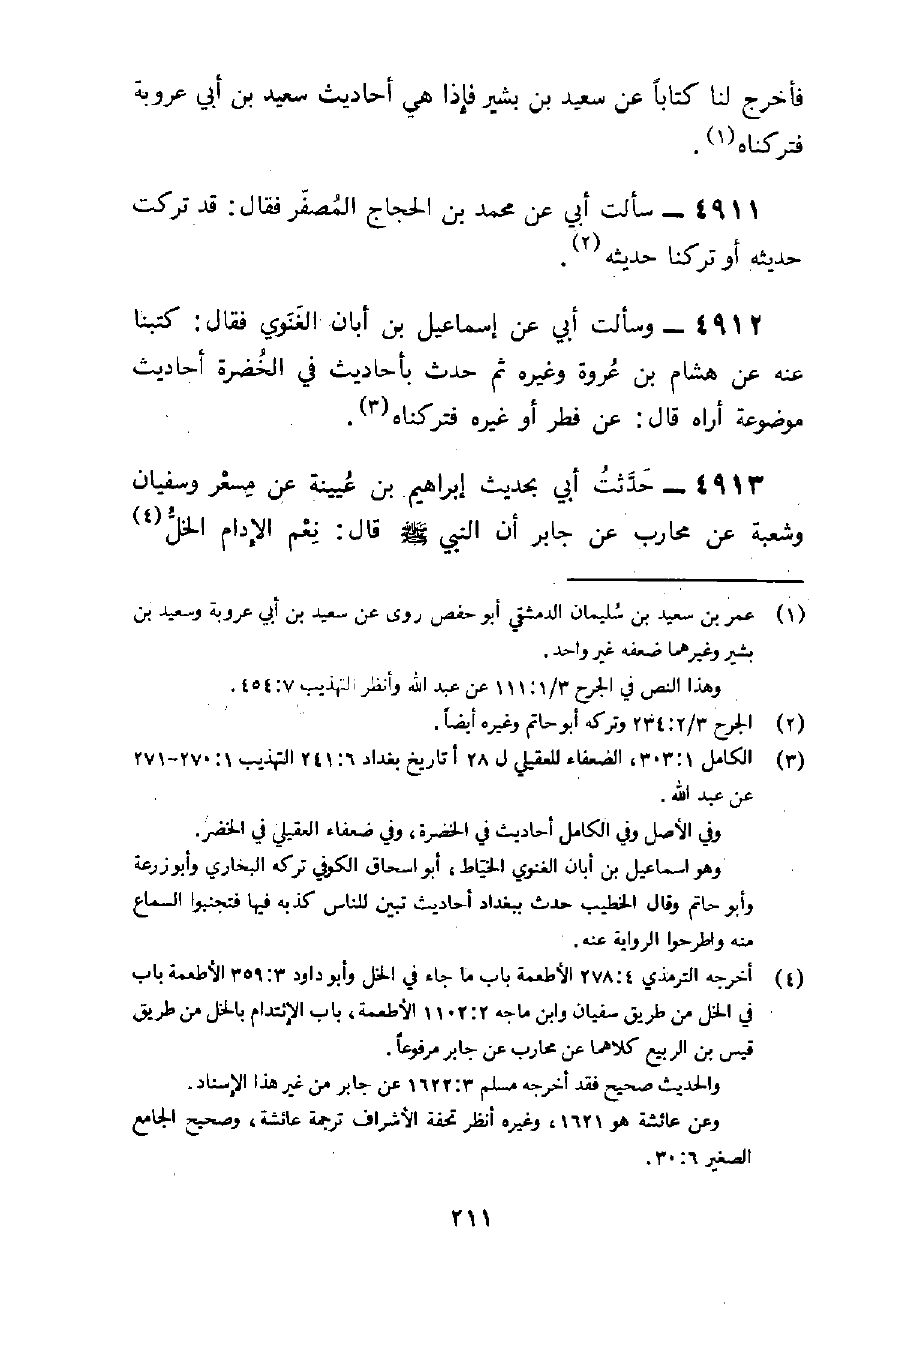 فأخرج لنا كتاباً عن سعيد بن بشير فإذا هي أحاديث سعيد بن أبي عروبة
فتركناه(١) .
٤٩١١ ــ سألت أبي عن محمد بن الحجاج المُصفّر فقال : قد تركت
حديثه أو تركنا حديثه(٢) .
٤٩١٢ ــ وسألت أبي عن إسماعيل بن أبان الغَنَوي فقال : كتبنا
عنه عن هشام بن عُروة وغيره ثم حدث بأحاديث في الخُضرة أحاديث
موضوعة أراه قال : عن فطر أو غيره فتركناه(٣) .
٤٩١٣ ــ حَدَّثتُ أبي بحديث إبراهيم بن عُيينة عن مِسعْر وسفيان
وشعبة عن محارب عن جابر أن النبي ﷺ قال : نِعْم الإدام الخلُّ(٤)
(١) عمر بن سعيد بن سُليمان الدمشقي أبو حفص روى عن سعيد بن أبي عروبة وسعيد بن
بشير وغيرهما ضعفه غير واحد .
وهذا النص في الجرح ١١١:١/٣ عن عبد الله وأنظر التهذيب ٤٥٤:٧ .
(٢) الجرح ٢٣٤:٢/٣ وتركه أبو حاتم وغيره أيضاً .
(٣) الكامل ٣٠٣:١، الضعفاء للعقيلي ل ٢٨ أ تاريخ بغداد ٢٤١:٦ التهذيب ٢٧٠:١-٢٧١
عن عبد الله .
وفي الأصل وفي الكامل أحاديث في الخضرة ، وفي ضعفاء العقيلي في الخضر.
وهو اسماعيل بن أبان الغنوي الخياط ، أبو اسحاق الكوفي تركه البخاري وأبو زرعة
وأبو حاتم وقال الخطيب حدث ببغداد أحاديث تبين للناس كذبه فيها فتجنبوا السماع
منه واطرحوا الرواية عنه .
(٤) أخرجه الترمذي ٢٧٨:٤ الأطعمة باب ما جاء في الخل وأبو داود ٣٥٩:٣ الأطعمة باب
في الخل من طريق سفيان وابن ماجه ١١٠٢:٢ الأطعمة ، باب الإئتدام بالخل من طريق
قيس بن الربيع كلاهما عن محارب عن جابر مرفوعاً .
والحديث صحيح فقد أخرجه مسلم ١٦٢٢:٣ عن جابر من غير هذا الإسناد .
وعن عائشة هو ١٦٢١ ، وغيره أنظر تحفة الأشراف ترجمة عائشة ، وصحيح الجامع
الصغير ٣٠:٦ .
٢١١